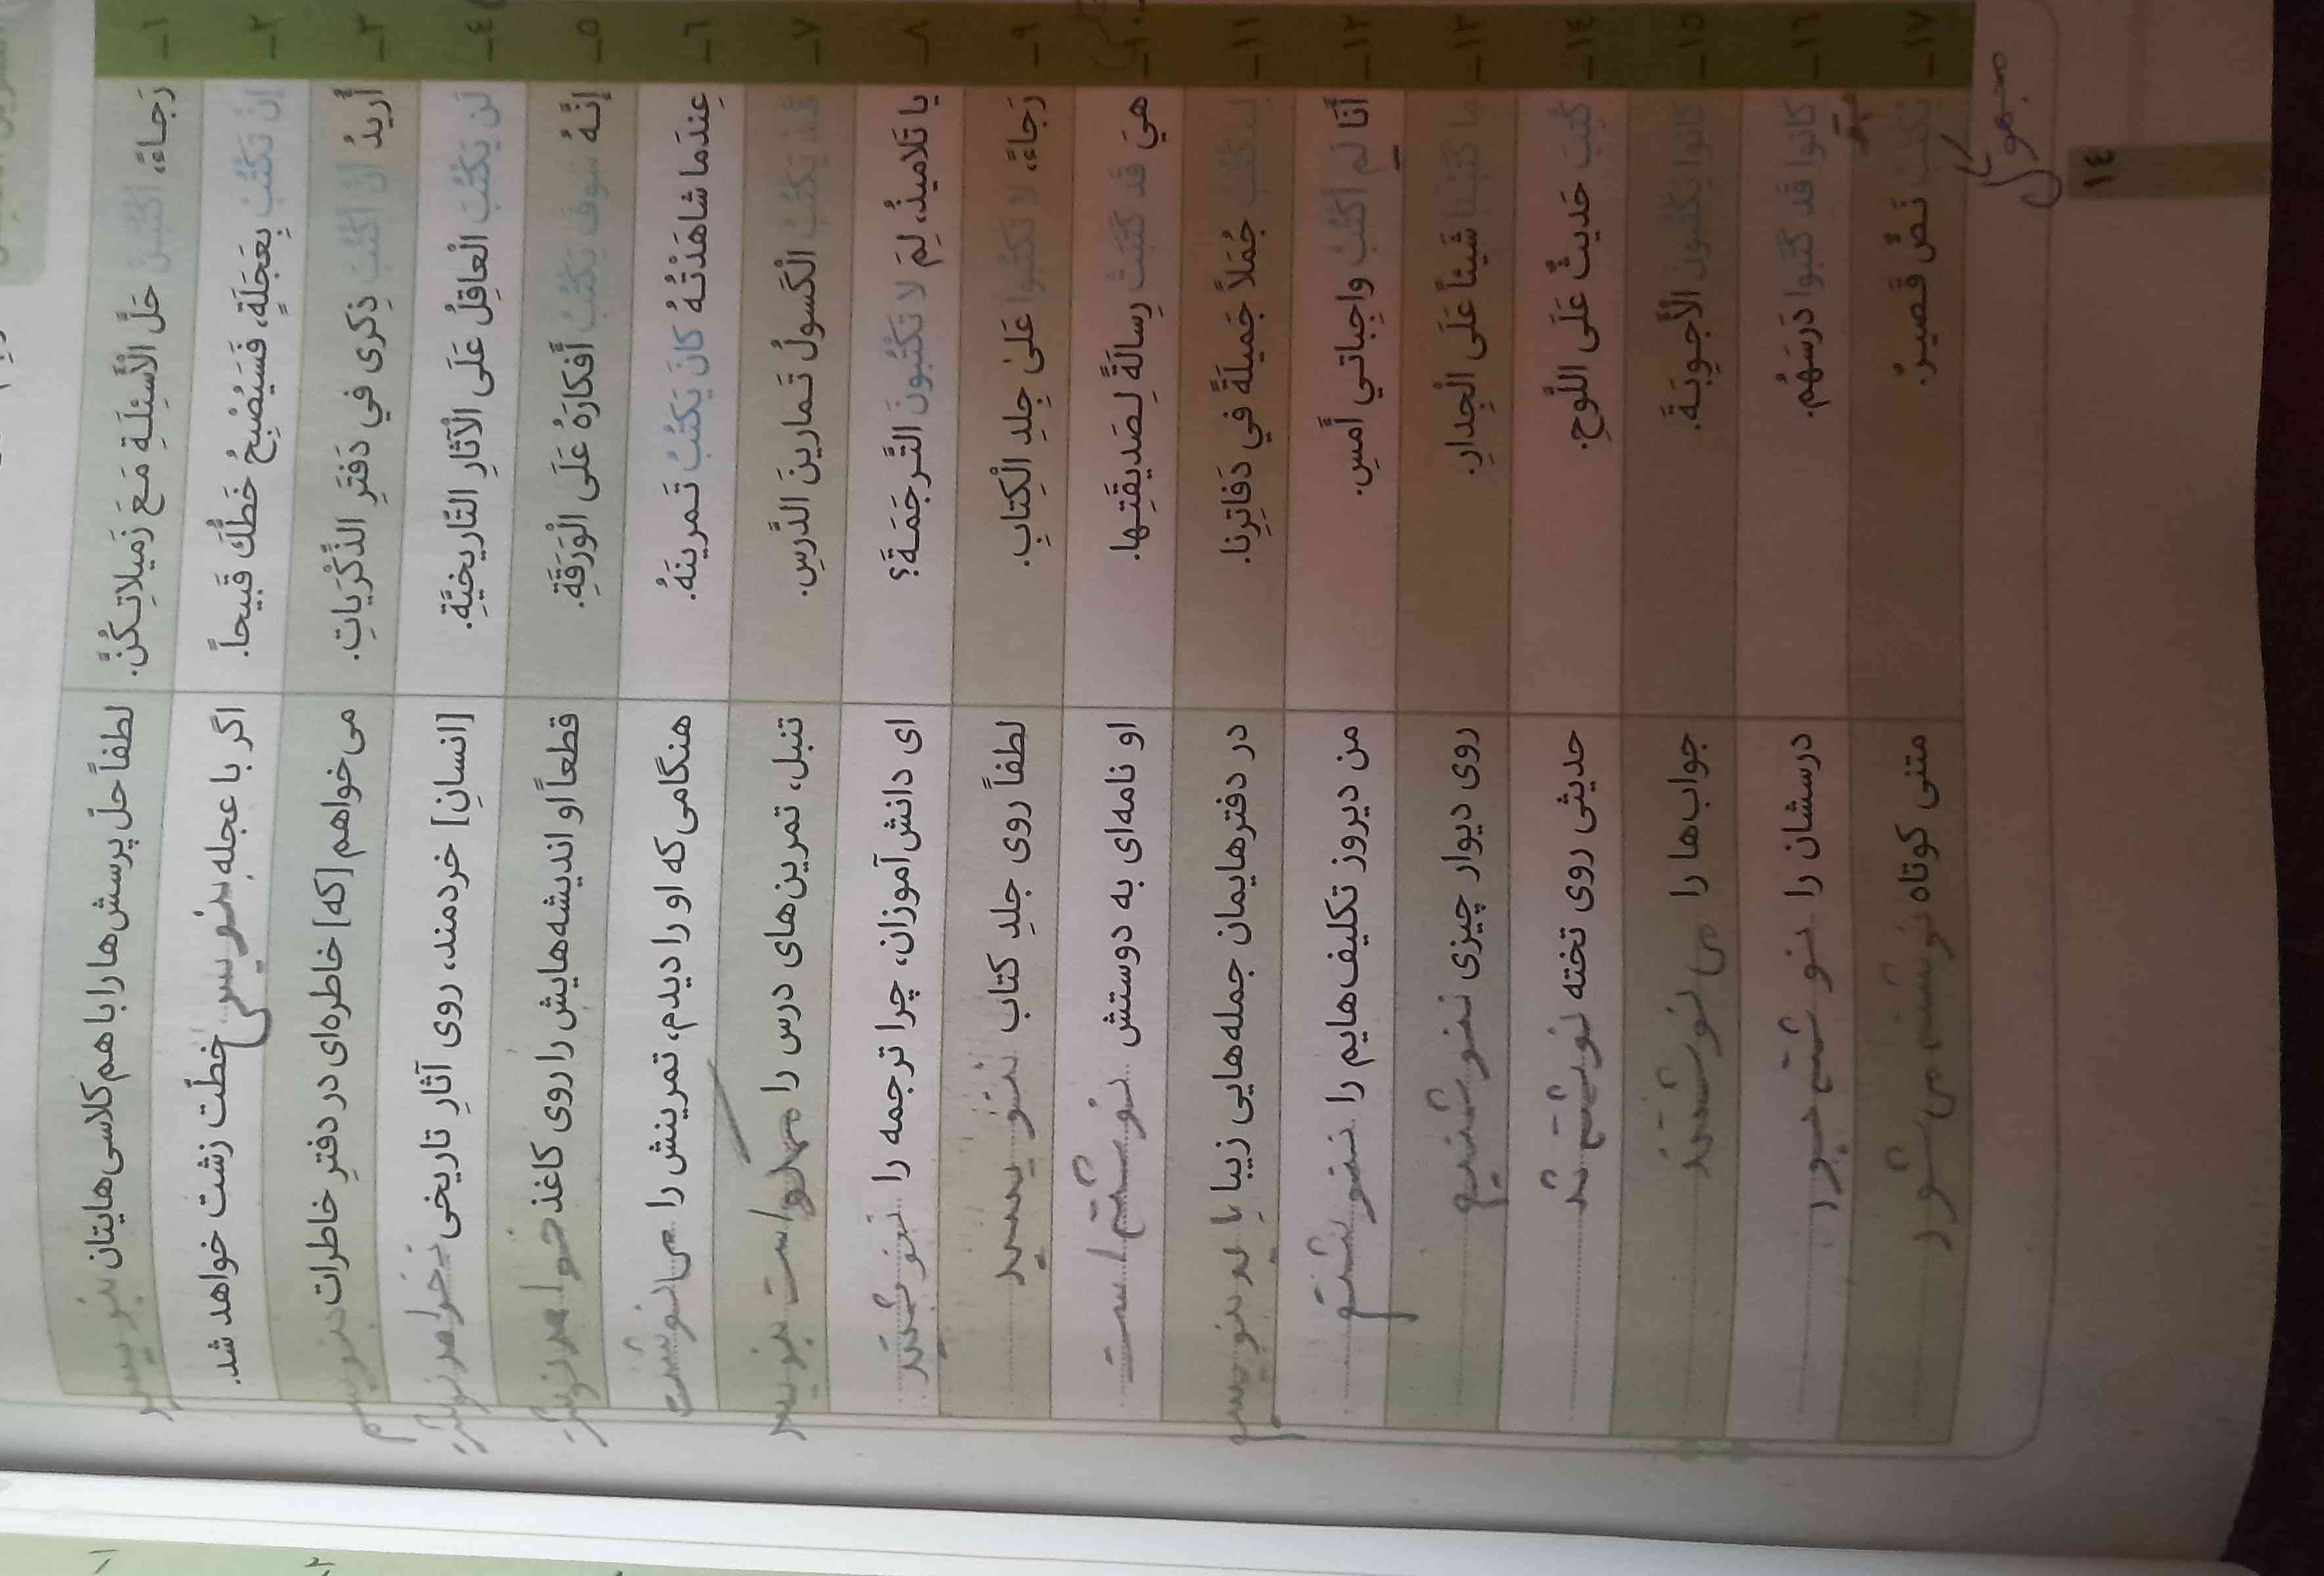 ١ــ رَجاءً، اُكْتُبْنَ حَلَّ الْأَسْئِلَةِ مَعَ زَميلاتِكُنَّ. لطفاً حلّ پرسش‌ها را با هم‌کلاسی‌هایتان بنویسید
٢ــ إنْ تَكْتُبْ بِعَجَلَةٍ، فَسَيُصْبِحُ خَطُّكَ قَبيحاً. اگر با عجله بنویسی خطّت زشت خواهد شد.
٣ــ أُريدُ أنْ أَكْتُبَ ذِكرىٰ في دَفتَرِ الذِّكْرَياتِ. می‌خواهم [که] خاطره‌ای در دفترِ خاطرات بنویسم
٤ــ لَن يَكْتُبَ الْعاقِلُ عَلَى الْآثارِ التّاريخيَّةِ. [انسانِ] خردمند، روی آثارِ تاریخی نخواهد نوشت
٥ــ إنَّهُ سَوفَ يَكْتُبُ أَفكارَهُ عَلَى الْوَرَقَةِ. قطعاً او اندیشه‌هایش را روی کاغذ خواهد نوشت
٦ــ عِندَما شاهَدْتُهُ كانَ يَكْتُبُ تَمرينَهُ. هنگامی که او را دیدم، تمرینش را می نوشت
٧ــ قَد يَكْتُبُ الْكَسولُ تَمارينَ الدَّرسِ. تنبل، تمرین‌های درس را بنویسد
٨ــ يا تَلاميذُ، لِمَ لا تَكْتُبونَ التَّرجَمَةَ؟ ای دانش‌آموزان، چرا ترجمه را
٩ــ رَجاءً، لا تَكْتُبوا عَلىٰ جِلدِ الْكِتابِ. لطفاً روی جلدِ کتاب ننویسید
١٠ــ هيَ قَد كَتَبَتْ رِسالَةً لِصَديقَتِها. او نامه‌ای به دوستش نوشته است
١١ــ لِنَكْتُبْ جُمَلاً جَميلَةً في دَفاتِرِنا. در دفترهایمان جمله‌هایی زیبا باید بنویسیم
١٢ــ أنَا لَم أَكْتُبْ واجِباتي أَمسِ. من دیروز تکلیف‌هایم را ننوشتم
١٣ــ ما كَتَبْنا شَيئاً عَلَى الْجِدارِ. روی دیوار چیزی ننوشتیم
١٤ــ كُتِبَ حَديثٌ عَلَى اللَّوحِ. حدیثی روی تخته نوشته شد
١٥ــ كانوا يَكْتُبونَ الْأَجوِبَةَ. جواب‌ها را می نوشتند
١٦ــ كانوا قَد كَتَبوا دَرسَهُم. درسشان را نوشته بود
١٧ــ يُكْتَبُ نَصٌّ قَصيرٌ. متنی کوتاه نوشته می شود
مجهول
١٤